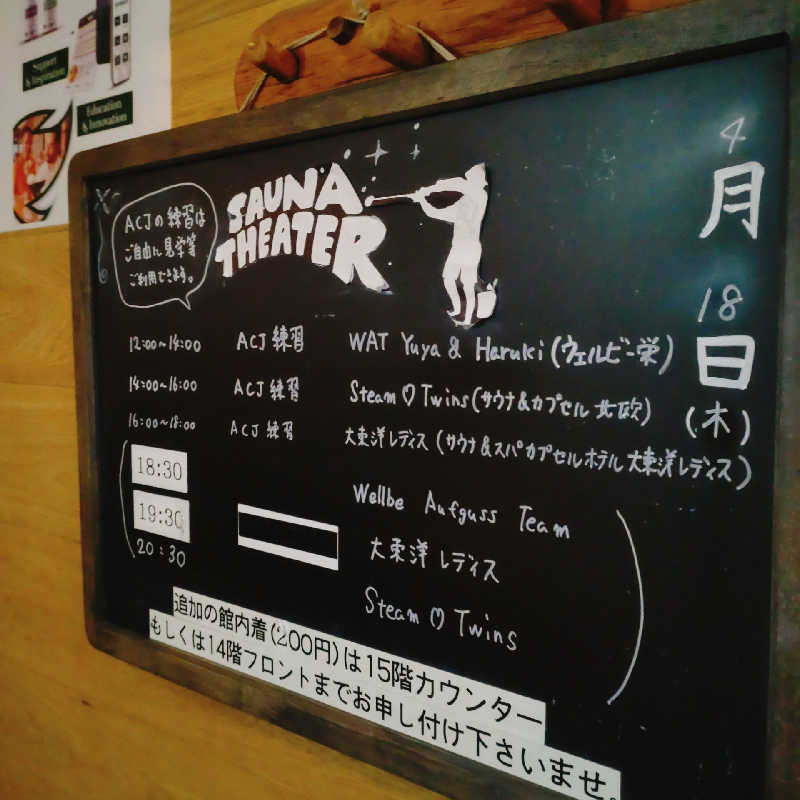 Support
& Inspiration
Education
& Innovation
ACJの練習は
ご自由に見学等
ご利用できます。
SAUNA
THEATER
4
月
18
日
(木)
12:00~14:00 ACJ練習 WAT Yuya & Haruki (ウェルビー栄)
14:00~16:00 ACJ練習 Steam♡Twins (サウナ&カプセル 北欧)
16:00~18:00 ACJ練習 大東洋レディス (サウナ&スパカプセルホテル大東洋レディス)
18:30 Wellbe Aufguss Team
19:30 大東洋レディス
20:30 Steam♡Twins
追加の館内着(200円)は15階カウンター
もしくは14階フロントまでお申し付け下さいませ。